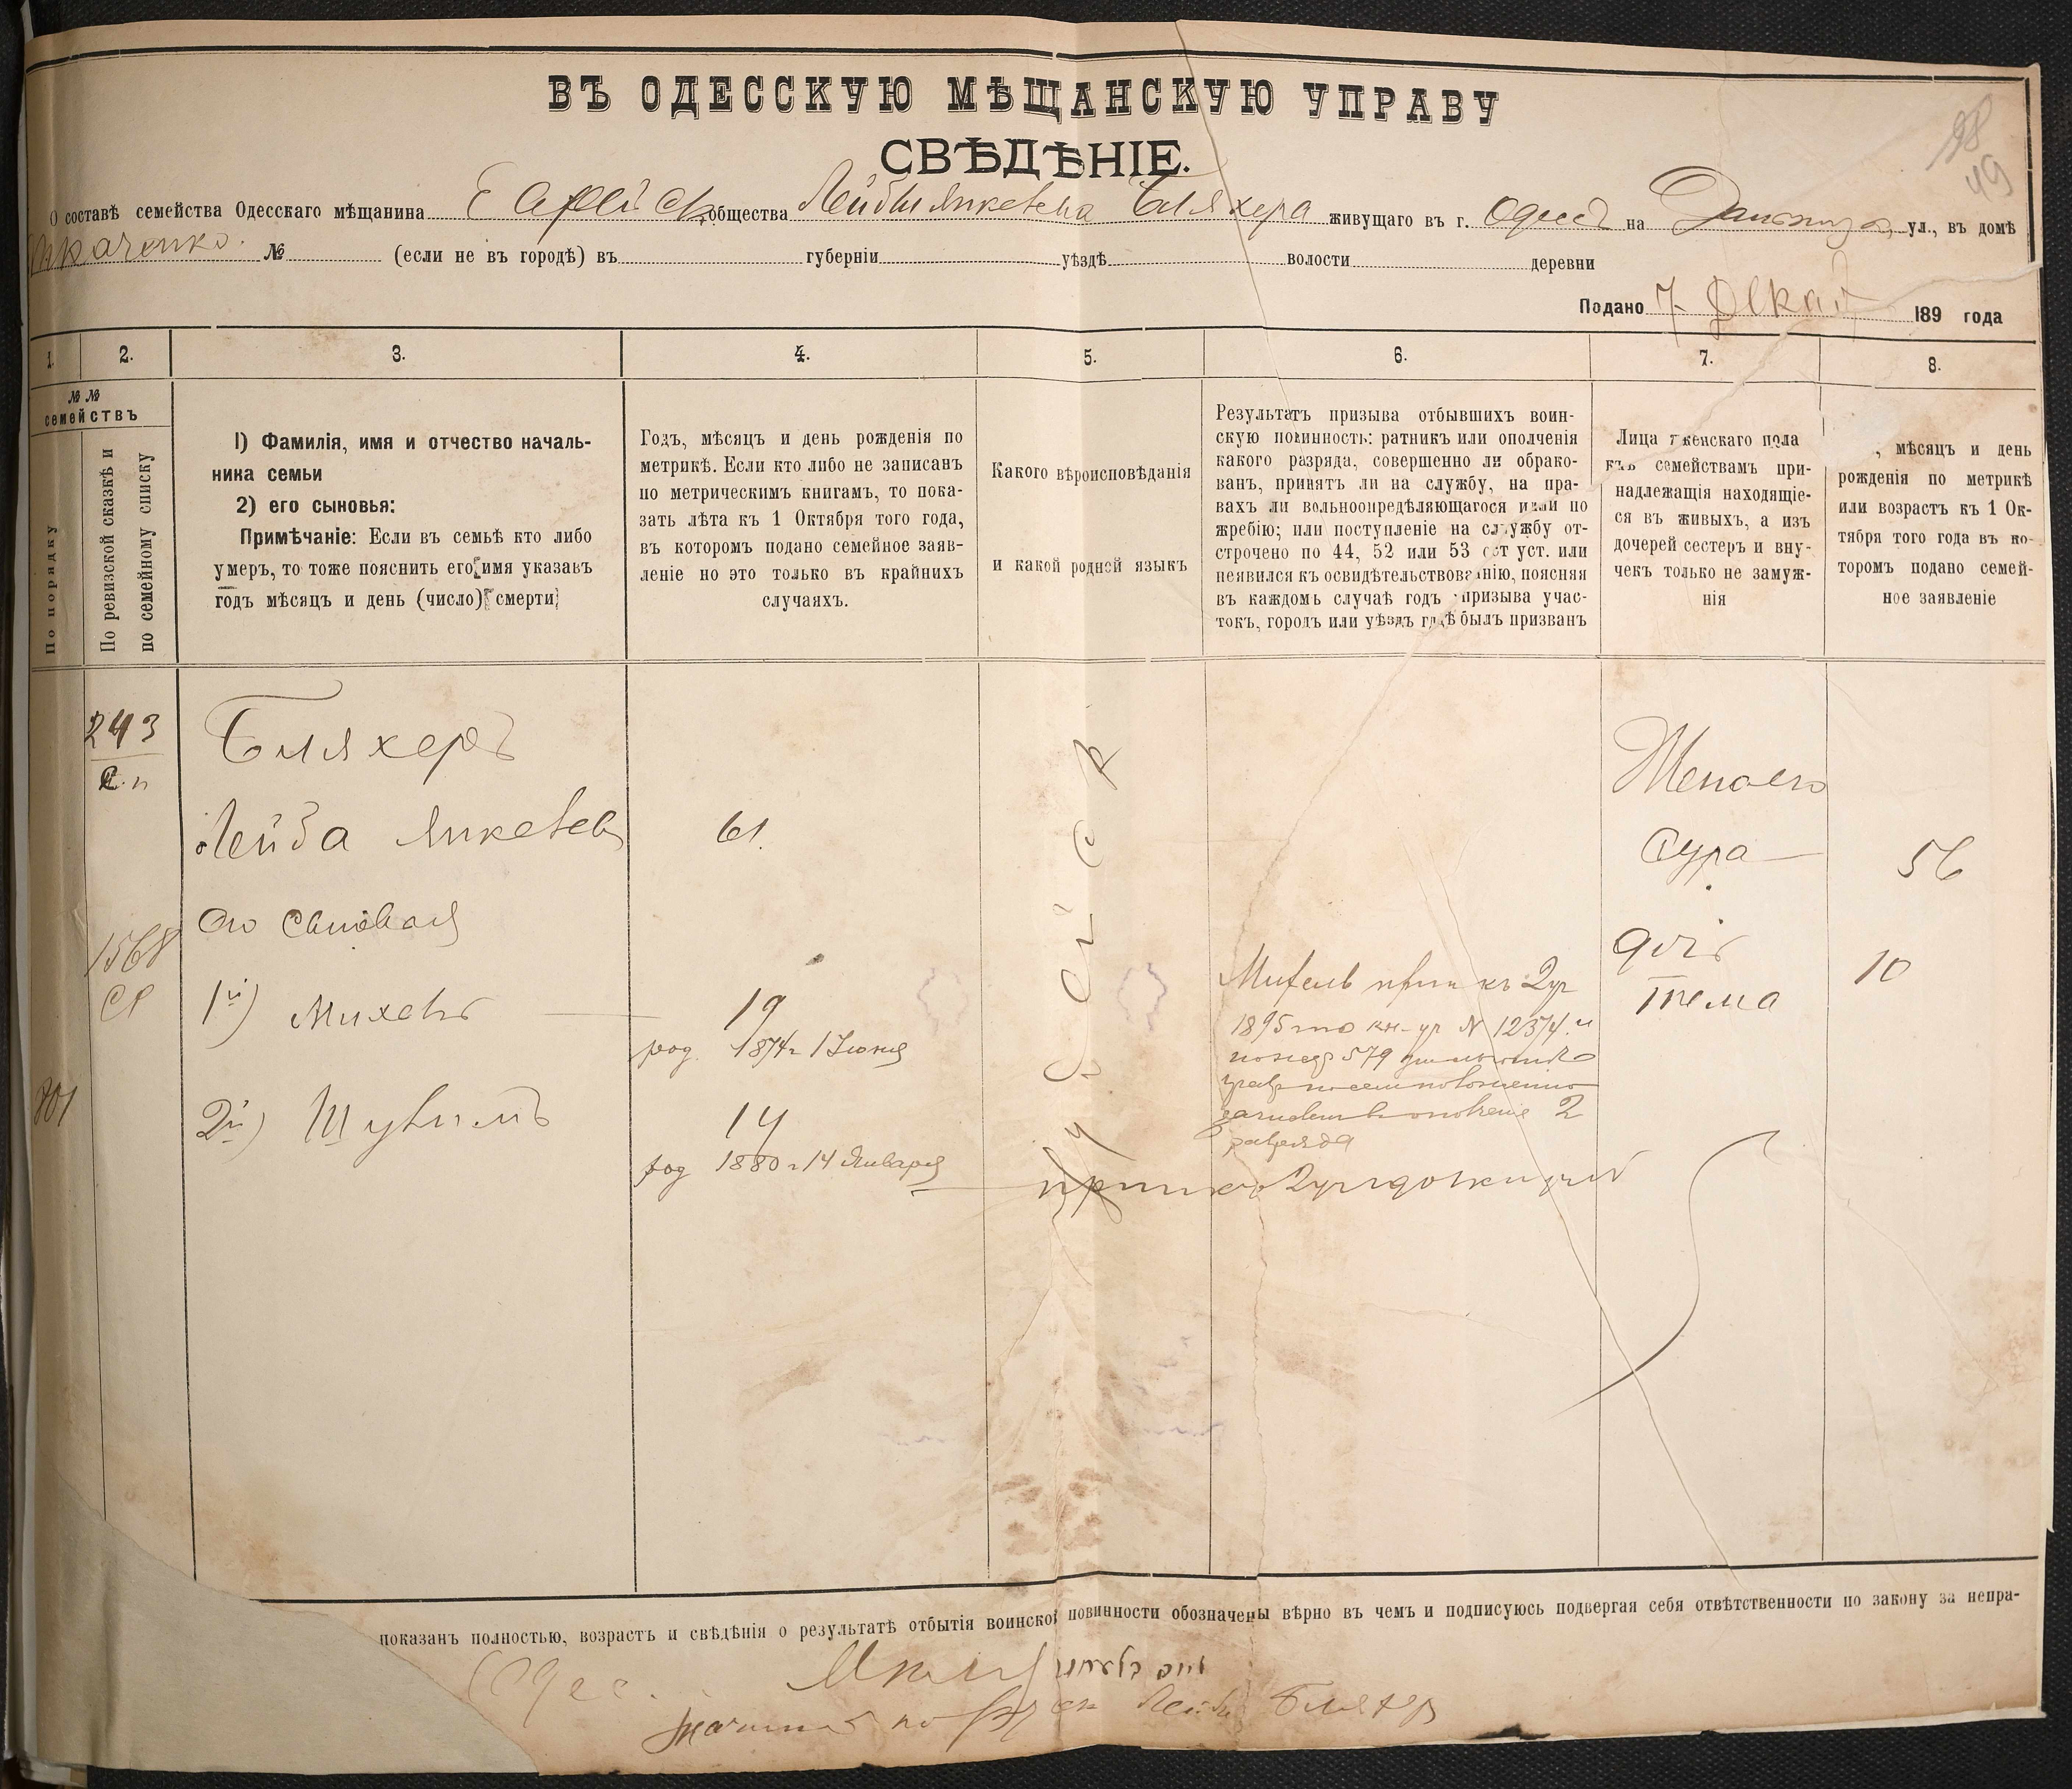 98
49
ВЪ ОДЕССКУЮ МѢЩАНСКУЮ УПРАВУ
СВѢДѢНІЕ.
О составѣ семейства Одесскаго мѣщанина Еврейск общества Лейбы Янкевича Бляхера живущаго въ г. Одессѣ на ул., въ домѣ
Ткаченко. № (если не въ городѣ) въ губерніи уѣздѣ волости деревни
Подано 7 Декаб 189 года
1. 2. 3. 4. 5. 6. 7. 8.
№№
семействъ
По порядку
По ревизской сказкѣ и
по семейному списку
1) Фамилія, имя и отчество началь-
ника семьи
2) его сыновья:
Примѣчаніе: Если въ семьѣ кто либо
умеръ, то тоже пояснить его имя указавъ
годъ мѣсяцъ и день (число) смерти
Годъ, мѣсяцъ и день рожденія по
метрикѣ. Если кто либо не записанъ
по метрическимъ книгамъ, то пока-
зать лѣта къ 1 Октября того года,
въ которомъ подано семейное заяв-
леніе но это только въ крайнихъ
случаяхъ.
Какого вѣроисповѣданія
и какой родной языкъ
Результатъ призыва отбывшихъ воин-
скую повинность: ратникъ или ополченія
какого разряда, совершенно ли обрако-
ванъ, принятъ ли на службу, на пра-
вахъ ли вольноопредѣляющагося или по
жребію; или поступленіе на службу от-
строчено по 44, 52 или 53 ст уст. или
неявился къ освидѣтельствованію, поясняя
въ каждомъ случаѣ годъ призыва учас-
токъ, городъ или уѣздъ гдѣ былъ призванъ
Лица женскаго пола
къ семействамъ при-
надлежащія находящіе-
ся въ живыхъ, а изъ
дочерей сестеръ и вну-
чекъ только не замуж-
нія
, мѣсяцъ и день
рожденія по метрикѣ
или возрастъ къ 1 Ок-
тября того года въ ко-
торомъ подано семей-
ное заявленіе
243
Бляхеръ
Жена его
Лейба Янкевъ 61.
Сура 56
Его Сыновья
1568
дочь
1й) Михель 19
Тема 10
род. 1874г 1 Іюня
801
2й) Шулимъ 14
род 1880 г 14 Января
Еврейск
Михель прип къ 2 уч
1895 по кн-уч № 12374.
579
2
разряда
показанъ полностью, возрастъ и свѣдѣнія о результатѣ отбытія воинской повинности обозначены вѣрно въ чемъ и подписуюсь подвергая себя отвѣтственности по закону за непра-
Одес.
Лейбы Бляхер